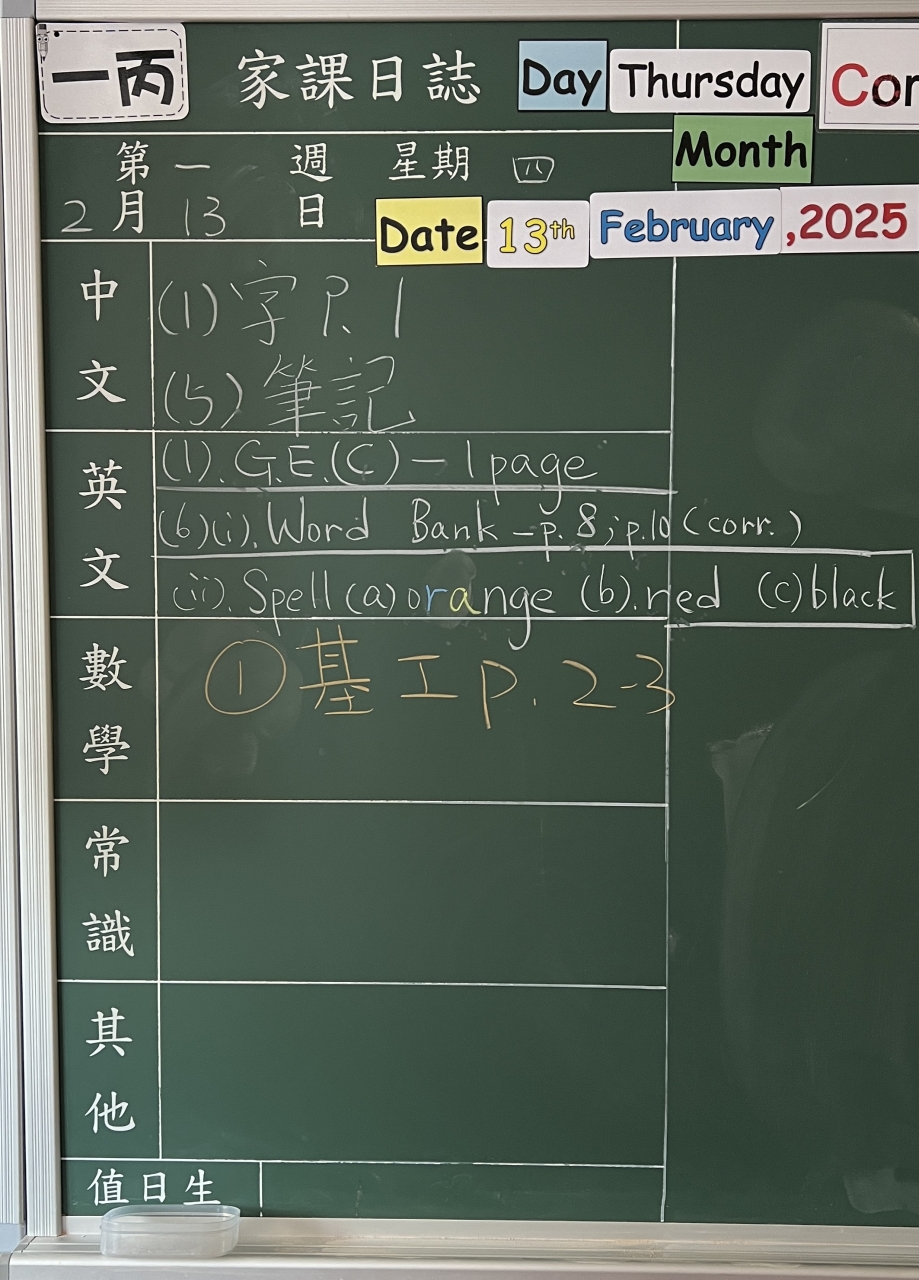 一丙 家課日誌 Day Thursday Cor
第一週 星期四 Month
2月13日 Date 13th February ,2025
中文
(1)字 P. 1
(5)筆記
英文
(1). G.E.(C) – 1 page
(6)(i). Word Bank – p. 8 ; p.10 (corr.)
(ii). Spell (a) orange (b). red (c) black
數學
① 基工 p. 2-3
常識
其他
值日生